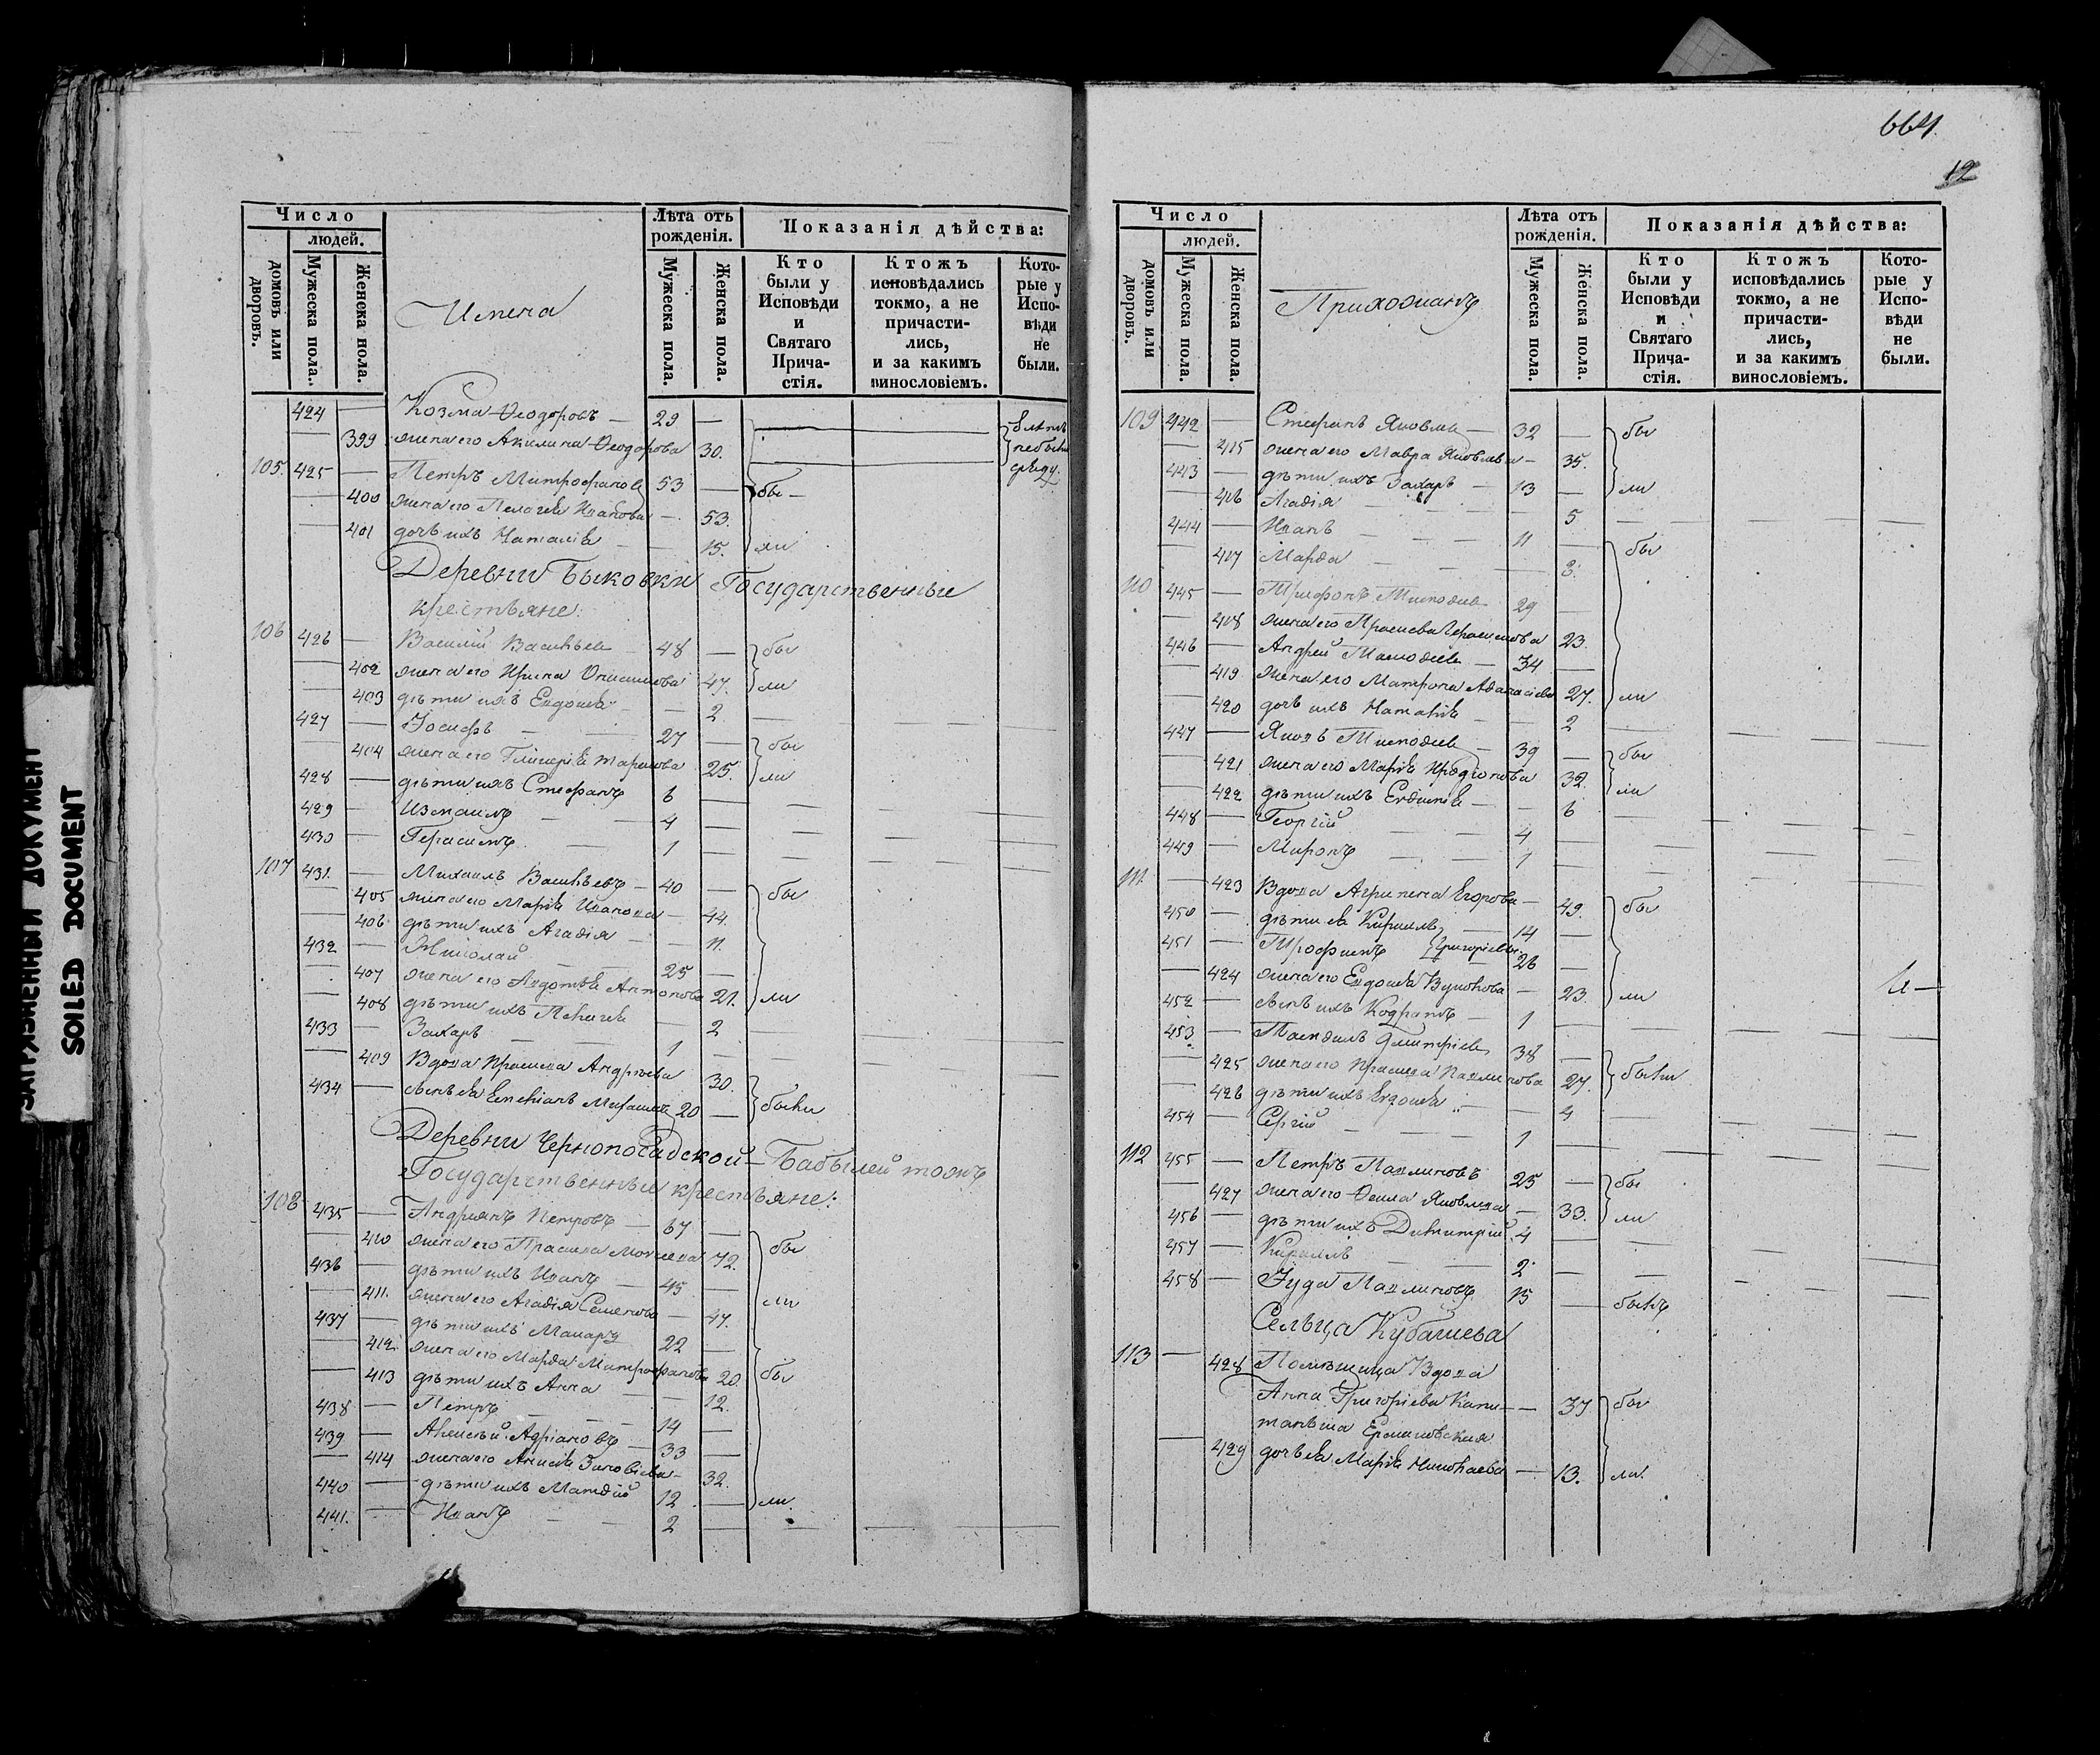 664.
12
ЗАГРЯЗНЕННЫЙ ДОКУМЕНТ
SOILED DOCUMENT
Число
людей.
домовъ или дворовъ.
Мужеска пола.
Женска пола.
Имена
Лѣта отъ рожденія.
Мужеска пола.
Женска пола.
Показанія дѣйства:
Кто были у Исповѣди и Святаго Прича-стія.
Ктожъ исповѣдались токмо, а не причасти-лись, и за какимъ винословіемъ.
Кото-рые у Испо-вѣди не были.
424 — Козма Ѳеодоровъ — 29 —
— 399 жена его Акилина Ѳеодорова 30.
105. 425 — Петръ Митрофановъ 53 — бы-
— 400 жена его Пелагея Иванова — 53.
— 401 дочь ихъ Наталія — 15. ли
Деревни Быковки Государственные
крестьяне:
106 426 — Василій Васильевъ — 48 — бы
— 402 жена его Ирина Онисимова 47. ли
— 403 дѣти ихъ Евдокія — 2 —
427 — Іосифъ — 27 — бы
— 404 жена его Гликерія Тарасова 25. ли
428 — дѣти ихъ Стефанъ 6 —
429 — Измаилъ — 4 —
430 — Герасимъ — 1 —
107 431. — Михаилъ Васильевъ — 40 — бы
— 405 жена его Марія Иванова — 44.
— 406 дѣти ихъ Агафія — 11.
432 — Николай — 25 —
— 407 жена его Авдотья Антонова 21. ли
— 408 дѣти ихъ Пелагея — 2
433 — Захаръ — 1 —
— 409 Вдова Прасковья Андреева 30.
434 — сынъ ея Емеліанъ 20 — были
Деревни Чернопосадской — Бабылей тожъ
Государственные крестьяне:
108 435 — Андріянъ Петровъ — 67 —
— 410 жена его Прасковья Моисеева 72. бы
436 — дѣти ихъ Иванъ — 45 —
— 411. жена его Агафія Семенова — 47. ли
437 — дѣти ихъ Макаръ 22 —
— 412. жена его Марфа Митрофанова 20. бы
— 413 дѣти ихъ Анна — 12.
438 — Петръ — 14 —
439 — Алексѣй Адріановъ — 33 —
— 414 жена его Анисія Зиновіева — 32.
440 — дѣти ихъ Матфій 12 — ли.
441. — Иванъ — 2 —
Число
людей.
домовъ или дворовъ.
Мужеска пола.
Женска пола.
Прихожанъ
Лѣта отъ рожденія.
Мужеска пола.
Женска пола.
Показанія дѣйства:
Кто были у Исповѣди и Святаго Прича-стія.
Ктожъ исповѣдались токмо, а не причасти-лись, и за какимъ винословіемъ.
Кото-рые у Испо-вѣди не были.
109 442 — Стефанъ Яковлевъ — 32 — бы
— 415 жена его Мавра Яковлева — 35.
443 — дѣти ихъ Захаръ — 13 — ли
— 416 Агафія — 5
444 — Иванъ — 11 — бы
— 417 Марфа — 8.
110 445 — Трифонъ Тимофеевъ 29 —
— 418 жена его Прасковья Герасимова 23.
446 — Андрей Тимофеевъ — 34 —
— 419 жена его Матрона Афанасіева 27. ли
— 420 дочь ихъ Наталія — 2
447 — Яковъ Тимофеевъ — 39 — бы
— 421 жена его Марія Иродіонова 32. ли
— 422 дѣти ихъ — 6
448 — Георгій — 4 —
449 — Миронъ — 1 —
111. — 423 Вдова Агрипена Егорова — 49. бы
450 — дѣти ея Кириллъ — 14 —
451 — Трофимъ Григорьевы 26 —
— 424 жена его Евдокія — 23. ли
452 — сынъ ихъ Кодратъ — 1 —
453 — Димитріевъ 38 —
— 425 жена его Прасковья Павлинова 27. были
— 426 дѣти ихъ Евдокія — 4
454 — Сергій — 1 —
112 455 — Петръ Павлиновъ 25 — бы
— 427 жена его Ѳекла Яковлева — 33. ли
456 — дѣти ихъ Димитрій 4 —
457 — Кириллъ — 2 —
458 — Іуда Павлиновъ 15 — былъ
Сельца Кубашева
113 — 428 Помѣщица Вдова
Анна Григоріева Капи- — 37 бы
танъша
— 429 дочь ея Марія Николаева — 13. ли.